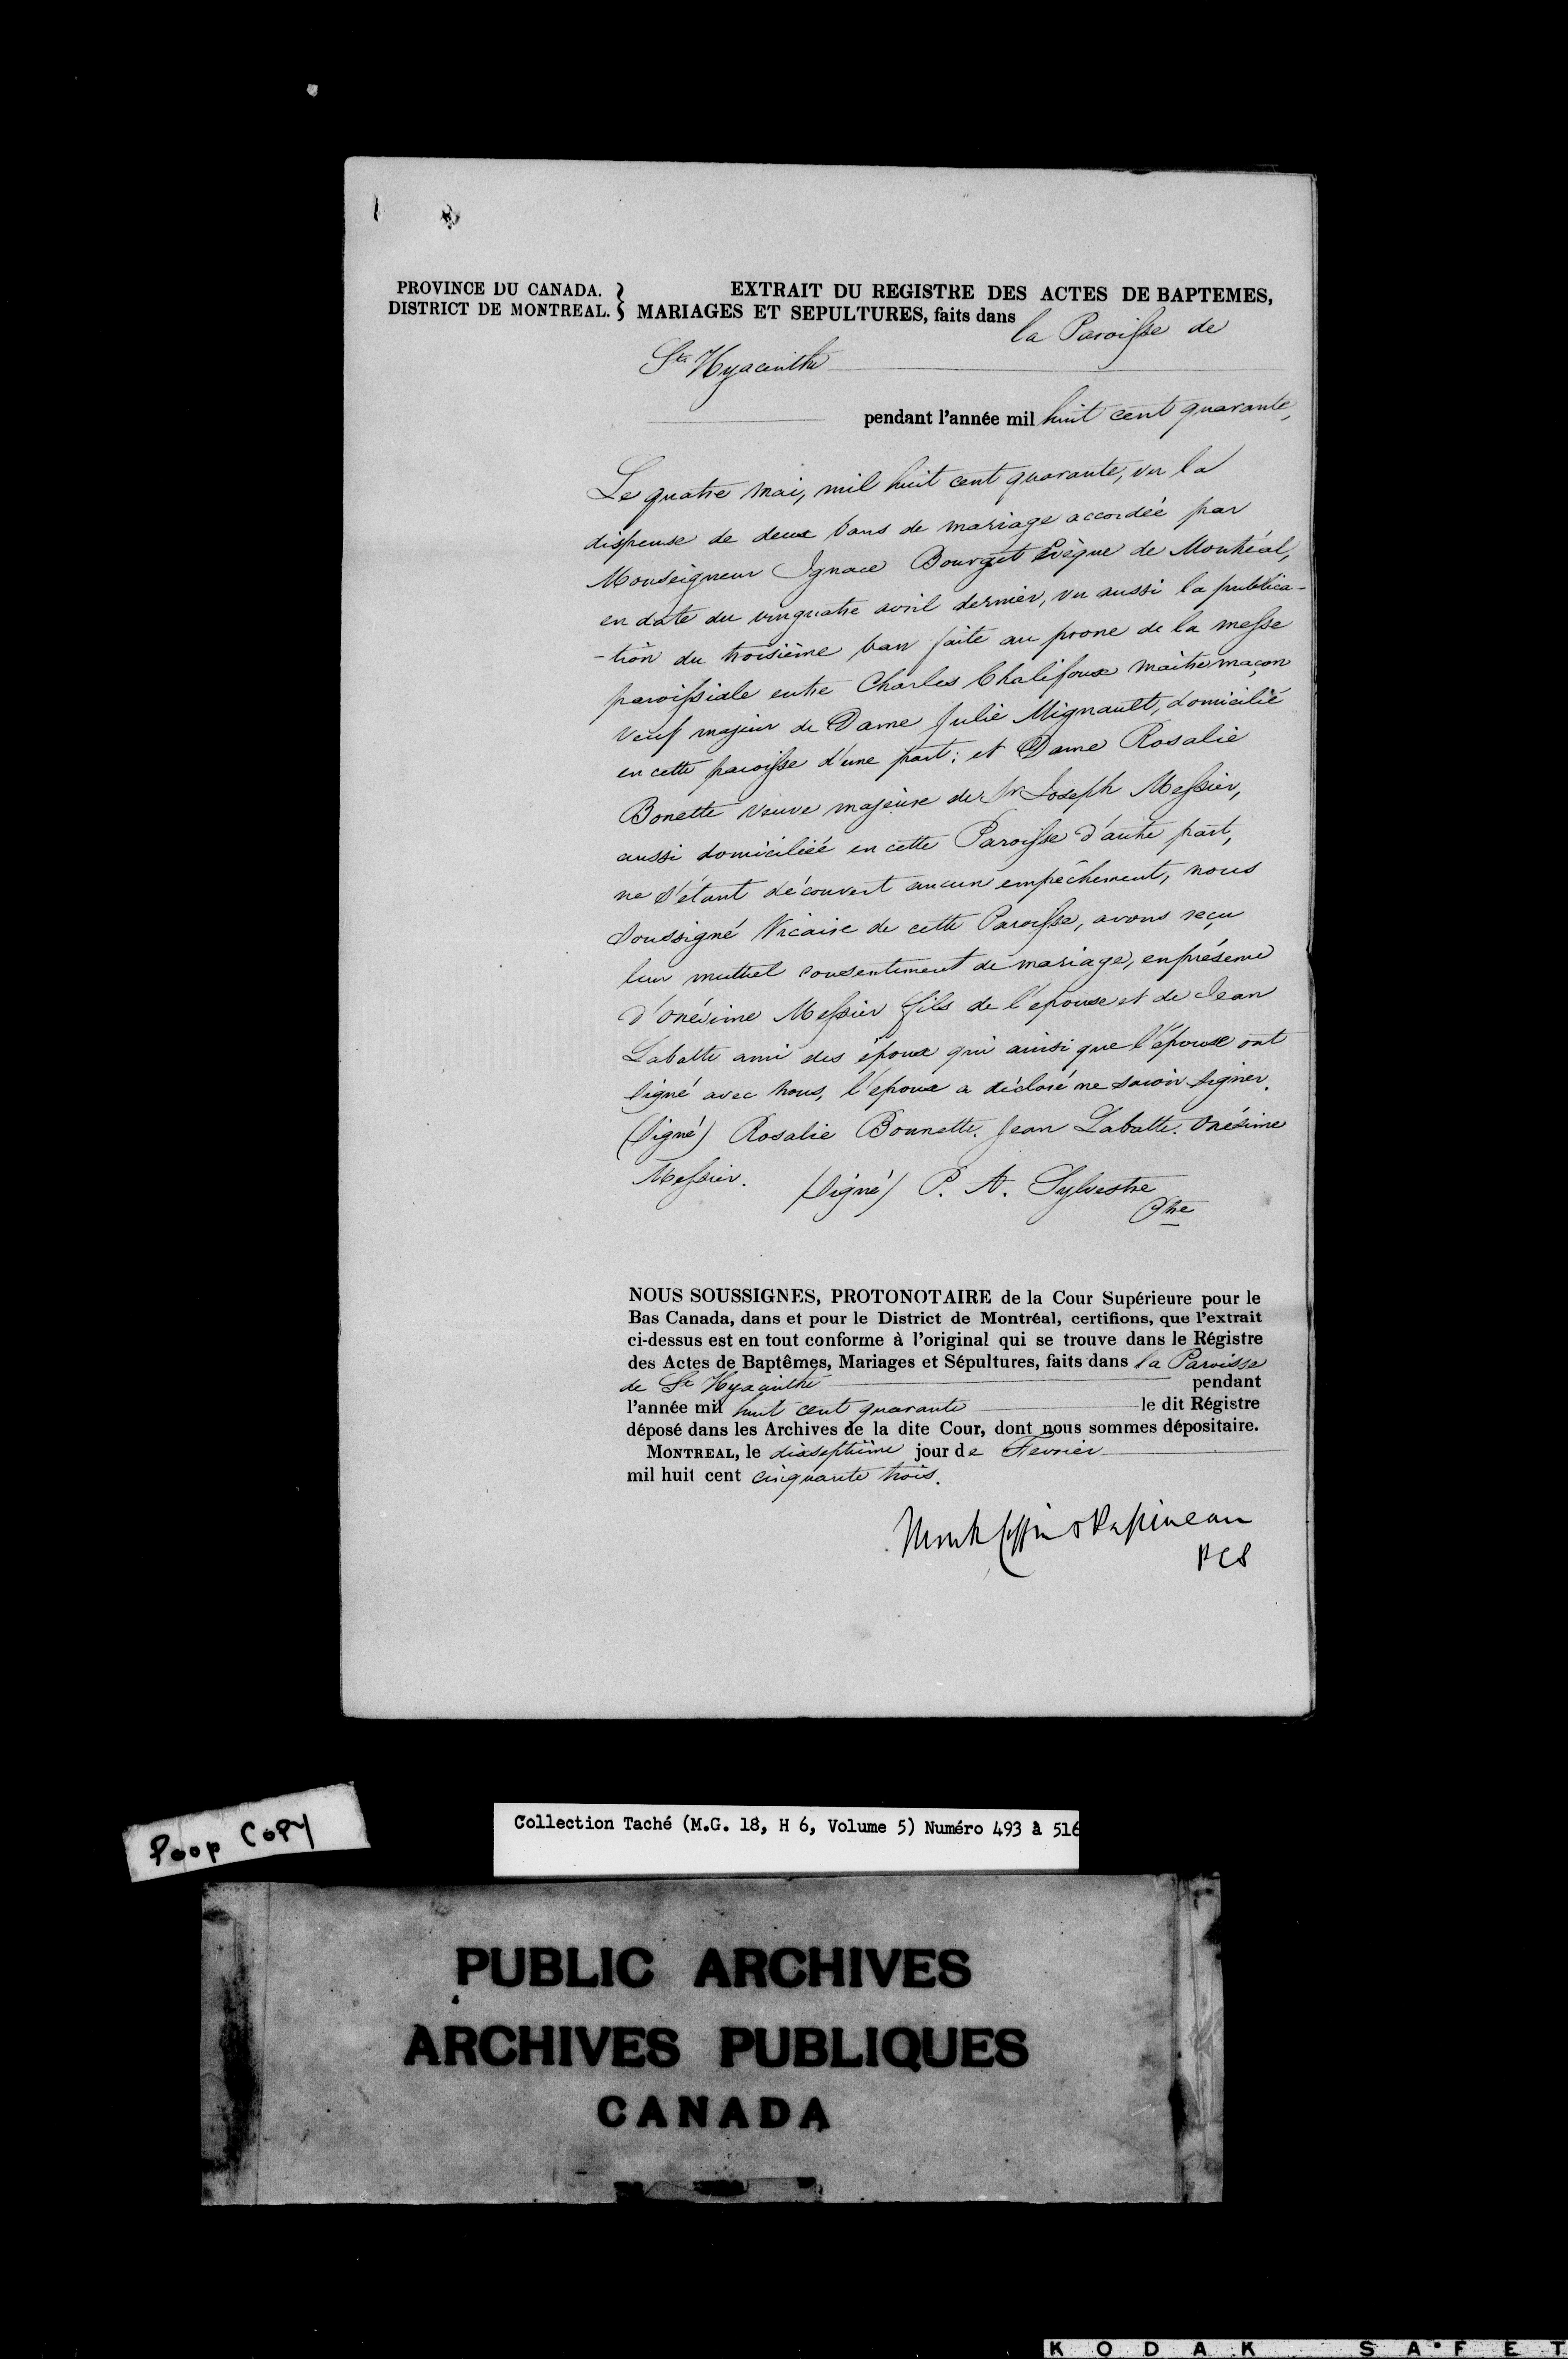 PROVINCE DU CANADA.
DISTRICT DE MONTREAL.
EXTRAIT DU REGISTRE DES ACTES DE BAPTEMES,
MARIAGES ET SEPULTURES, faits dans la Paroisse de
Ste Hyacinthe
pendant l'année mil huit cent quarante,
Le quatre mai, mil huit cent quarante, vu la
dispense de deux bans de mariage accordée par
Monseigneur Ignace Bourget Evêque de Montréal,
en date du vingquatre avril dernier, vu aussi la publica-
-tion du troisième ban faite au prone de la messe
paroissiale entre Charles Chalifoux maître maçon
veuf majeur de Dame Julie Mignault, domicilié
en cette paroisse d'une part; et Dame Rosalie
Bonette veuve majeure de Sr Joseph Messier,
aussi domiciliée en cette Paroisse d'autre part,
ne s'étant découvert aucun empêchement, nous
soussigné Vicaire de cette Paroisse, avons reçu
leur mutuel consentement de mariage, en présence
d'onésime Messier fils de l'epouse et de Jean
Labatte ami des époux qui ainsi que l'épouse ont
signé avec nous, l'epoux a déclaré ne savoir signer.
(Signé) Rosalie Bonnette. Jean Labatte. Onésime
Messier. (Signé) P. A. Sylvestre
Ptre
NOUS SOUSSIGNES, PROTONOTAIRE de la Cour Supérieure pour le
Bas Canada, dans et pour le District de Montréal, certifions, que l'extrait
ci-dessus est en tout conforme à l'original qui se trouve dans le Régistre
des Actes de Baptêmes, Mariages et Sépultures, faits dans la Paroisse
de St Hyacinthe pendant
l'année mil huit cent quarante le dit Régistre
déposé dans les Archives de la dite Cour, dont nous sommes dépositaire.
MONTREAL, le dixseptième jour de Fevrier
mil huit cent cinquante trois.
Monk Coffin & Papineau
PCS
Poop COPY
Collection Taché (M.G. 18, H 6, Volume 5) Numéro 493 à 516
PUBLIC ARCHIVES
ARCHIVES PUBLIQUES
CANADA
KODAK SAFET